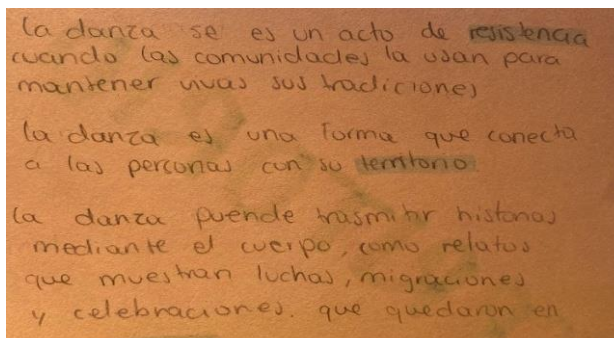 la danza se es un acto de resistencia
cuando las comunidades la usan para
mantener vivas sus tradiciones
la danza es una forma que conecta
a las personas con su territorio
la danza puende trasmitir historias
mediante el cuerpo, como relatos
que muestran luchas, migraciones
y celebraciones. que quedaron en